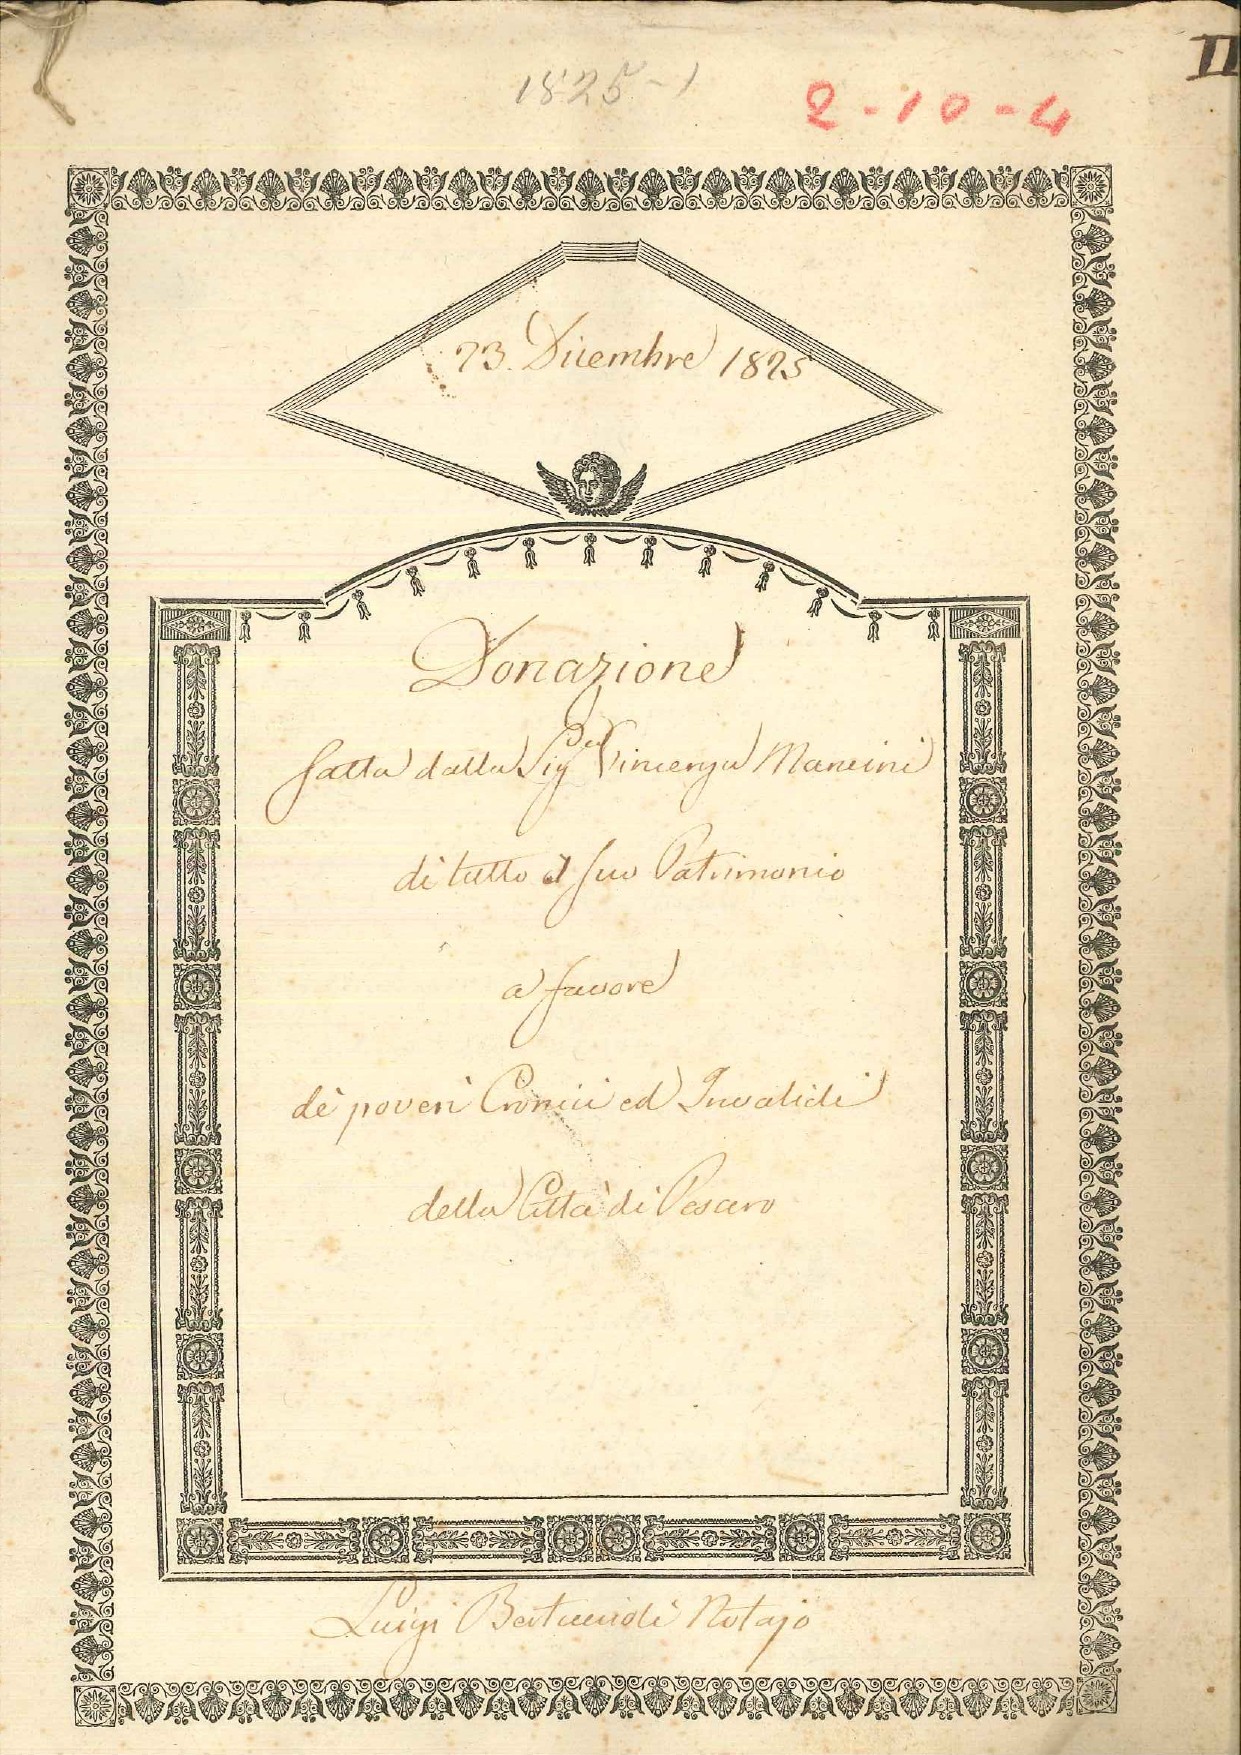 1825-1
2-10-4
II
23. Dicembre 1825
Donazione
fatta dalla Sig.ra Vincenza Mancini
di tutto il suo Patrimonio
a favore
de' poveri Cronici ed Invalidi
della Città di Pesaro
Luigi Bertuccioli Notajo